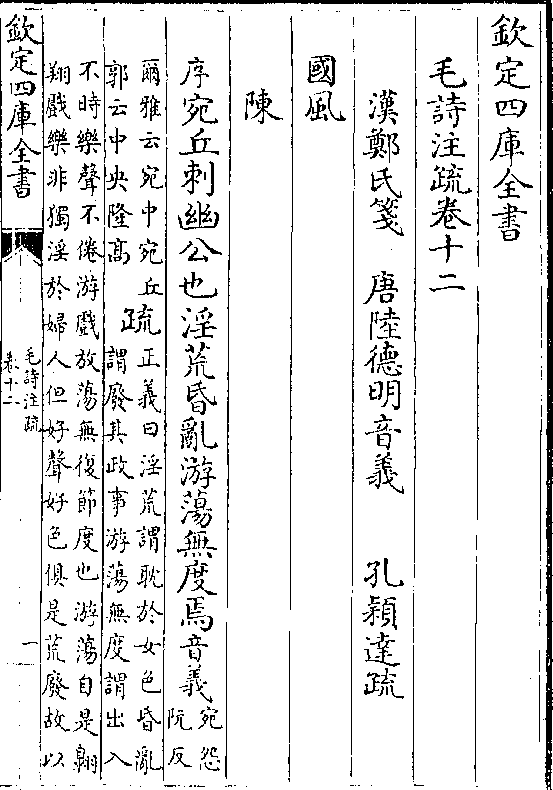 欽定四庫全書
毛詩注疏卷十二
漢鄭氏箋　唐陸德明音義　孔穎達疏
國風
陳
序宛丘刺幽公也淫荒昏亂游蕩無度焉音義宛怨
阮反
爾雅云宛中宛丘
郭云中央隆高
疏正義曰淫荒謂耽於女色昏亂
謂廢其政事游蕩無度謂出入
不時樂聲不倦游戲放蕩無復節度也游蕩自是翺
翔戲樂非獨淫於婦人但好聲好色俱是荒廢故以
欽定四庫全書
毛詩注疏
卷十二
一